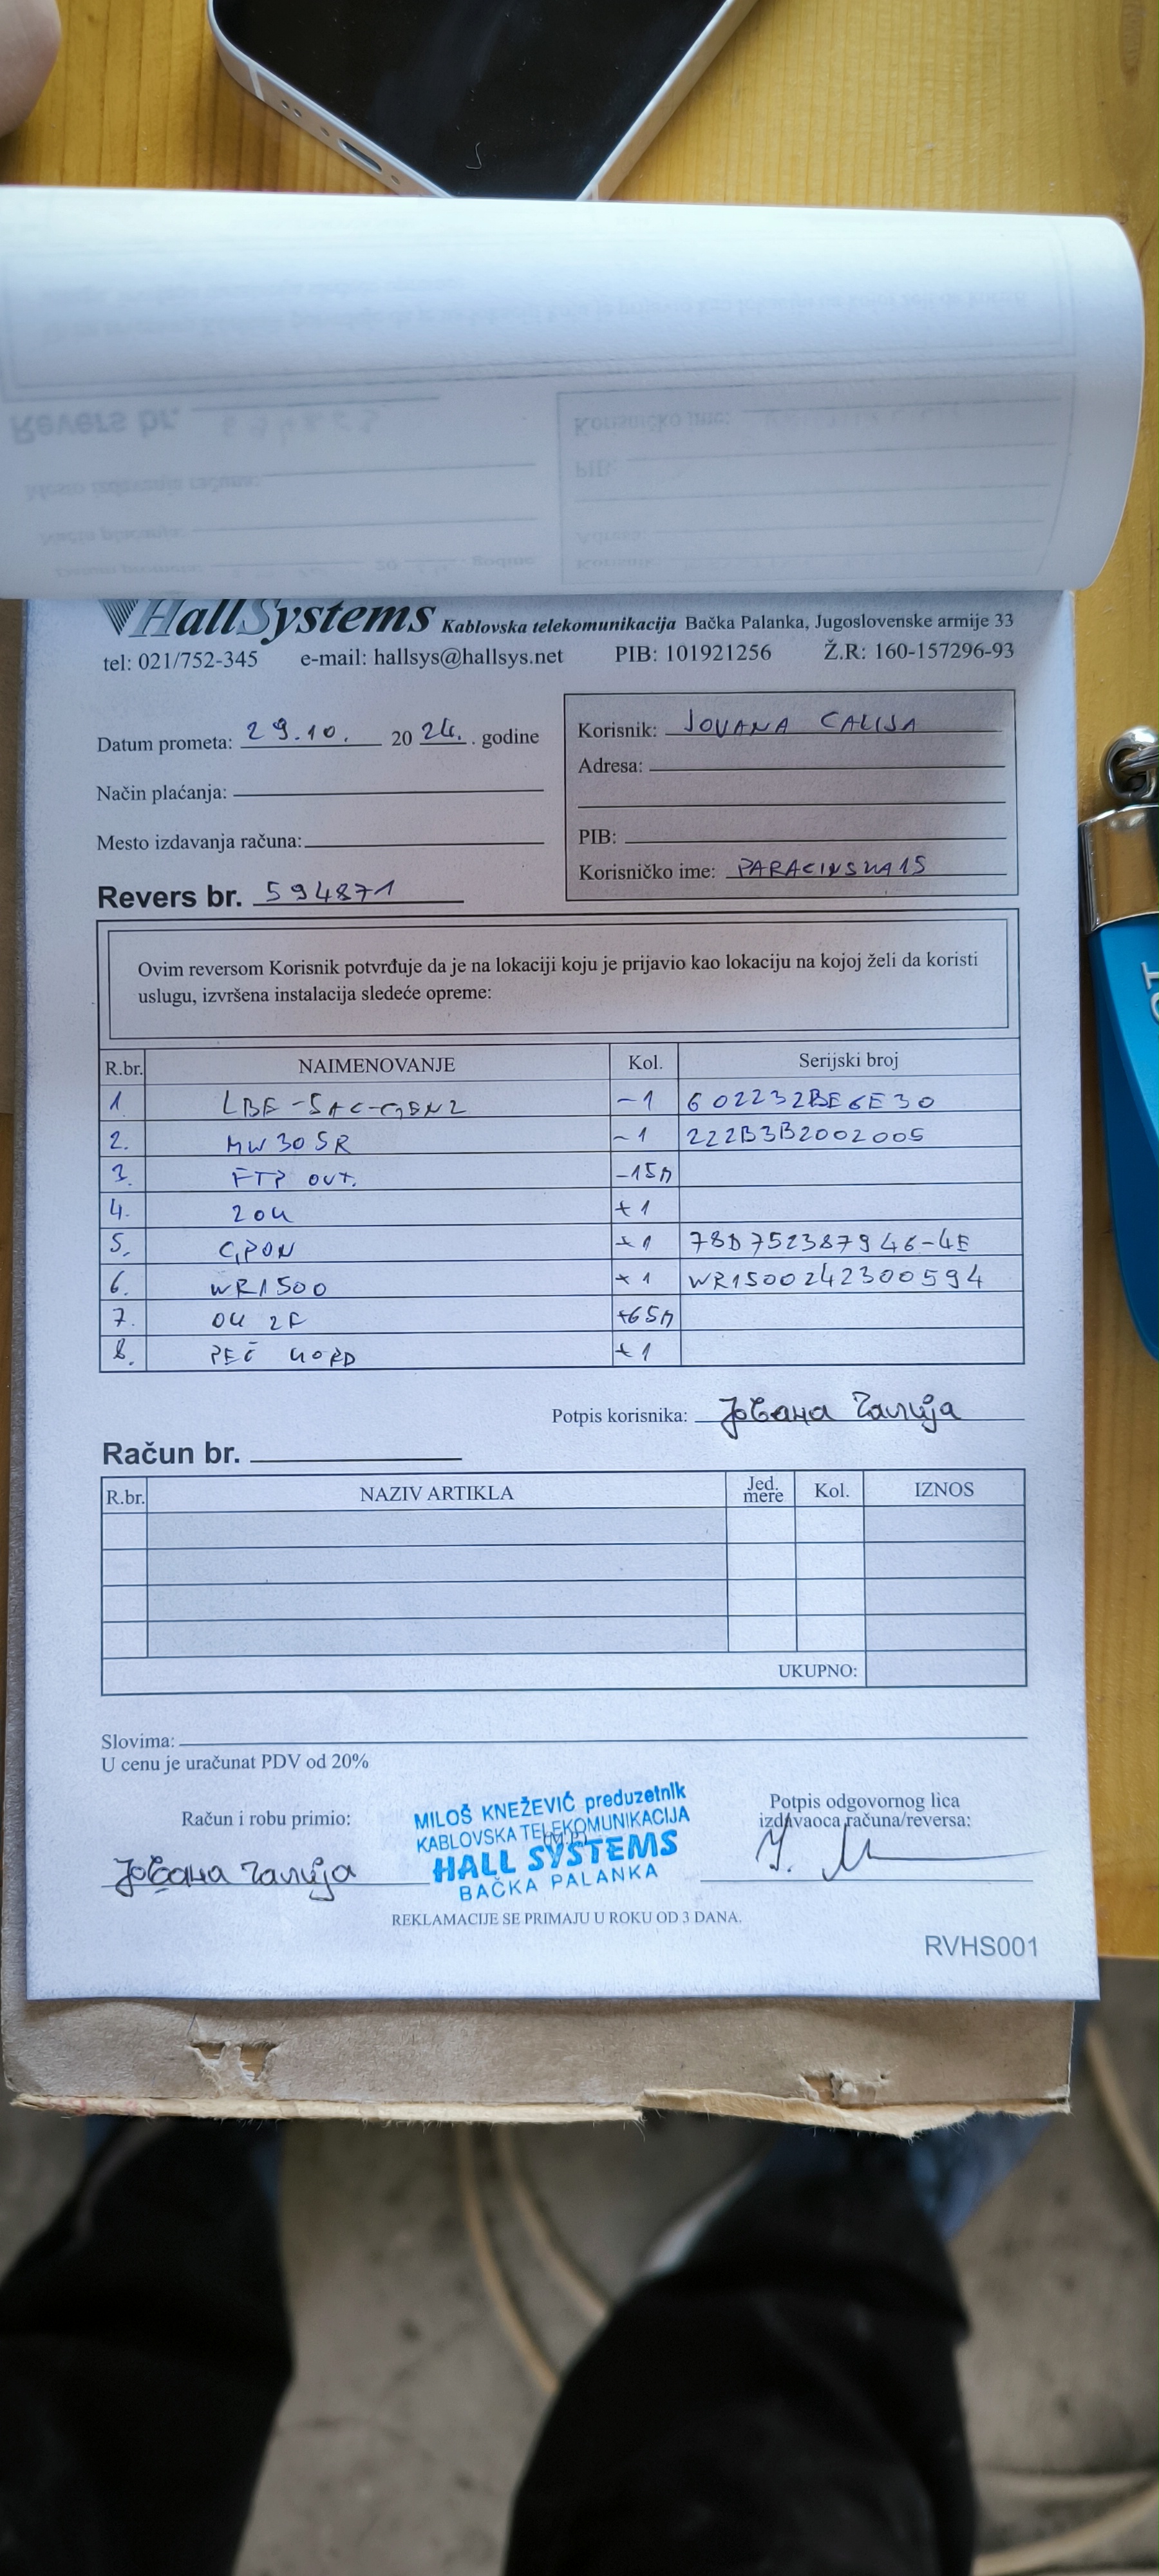 HallSystems Kablovska telekomunikacija Bačka Palanka, Jugoslovenske armije 33
tel: 021/752-345 e-mail: hallsys@hallsys.net PIB: 101921256 Ž.R: 160-157296-93
Datum prometa: 29.10. 20 24. . godine
Način plaćanja:
Mesto izdavanja računa:
Revers br. 594871
Korisnik: JOVANA CALIJA
Adresa:
PIB:
Korisničko ime: PARACINSKA15
Ovim reversom Korisnik potvrđuje da je na lokaciji koju je prijavio kao lokaciju na kojoj želi da koristi
uslugu, izvršena instalacija sledeće opreme:
R.br. NAIMENOVANJE Kol. Serijski broj
1. LBE-5AC-GEN2 -1 602232BE6E30
2. MW305R -1 222B3B2002005
3. FTP OUT. -15m
4. ZOK +1
5. GPON +1 78D752387946-4E
6. WR1500 +1 WR1500242300594
7. OK 2F +65m
8. PEČ KORD +1
Potpis korisnika: Јована Галија
Račun br.
R.br. NAZIV ARTIKLA Jed. mere Kol. IZNOS
UKUPNO:
Slovima:
U cenu je uračunat PDV od 20%
Račun i robu primio:
Јована Галија
MILOŠ KNEŽEVIĆ preduzetnik
KABLOVSKA TELEKOMUNIKACIJA
(M.P.)
HALL SYSTEMS
BAČKA PALANKA
Potpis odgovornog lica
izdavaoca računa/reversa:
REKLAMACIJE SE PRIMAJU U ROKU OD 3 DANA.
RVHS001